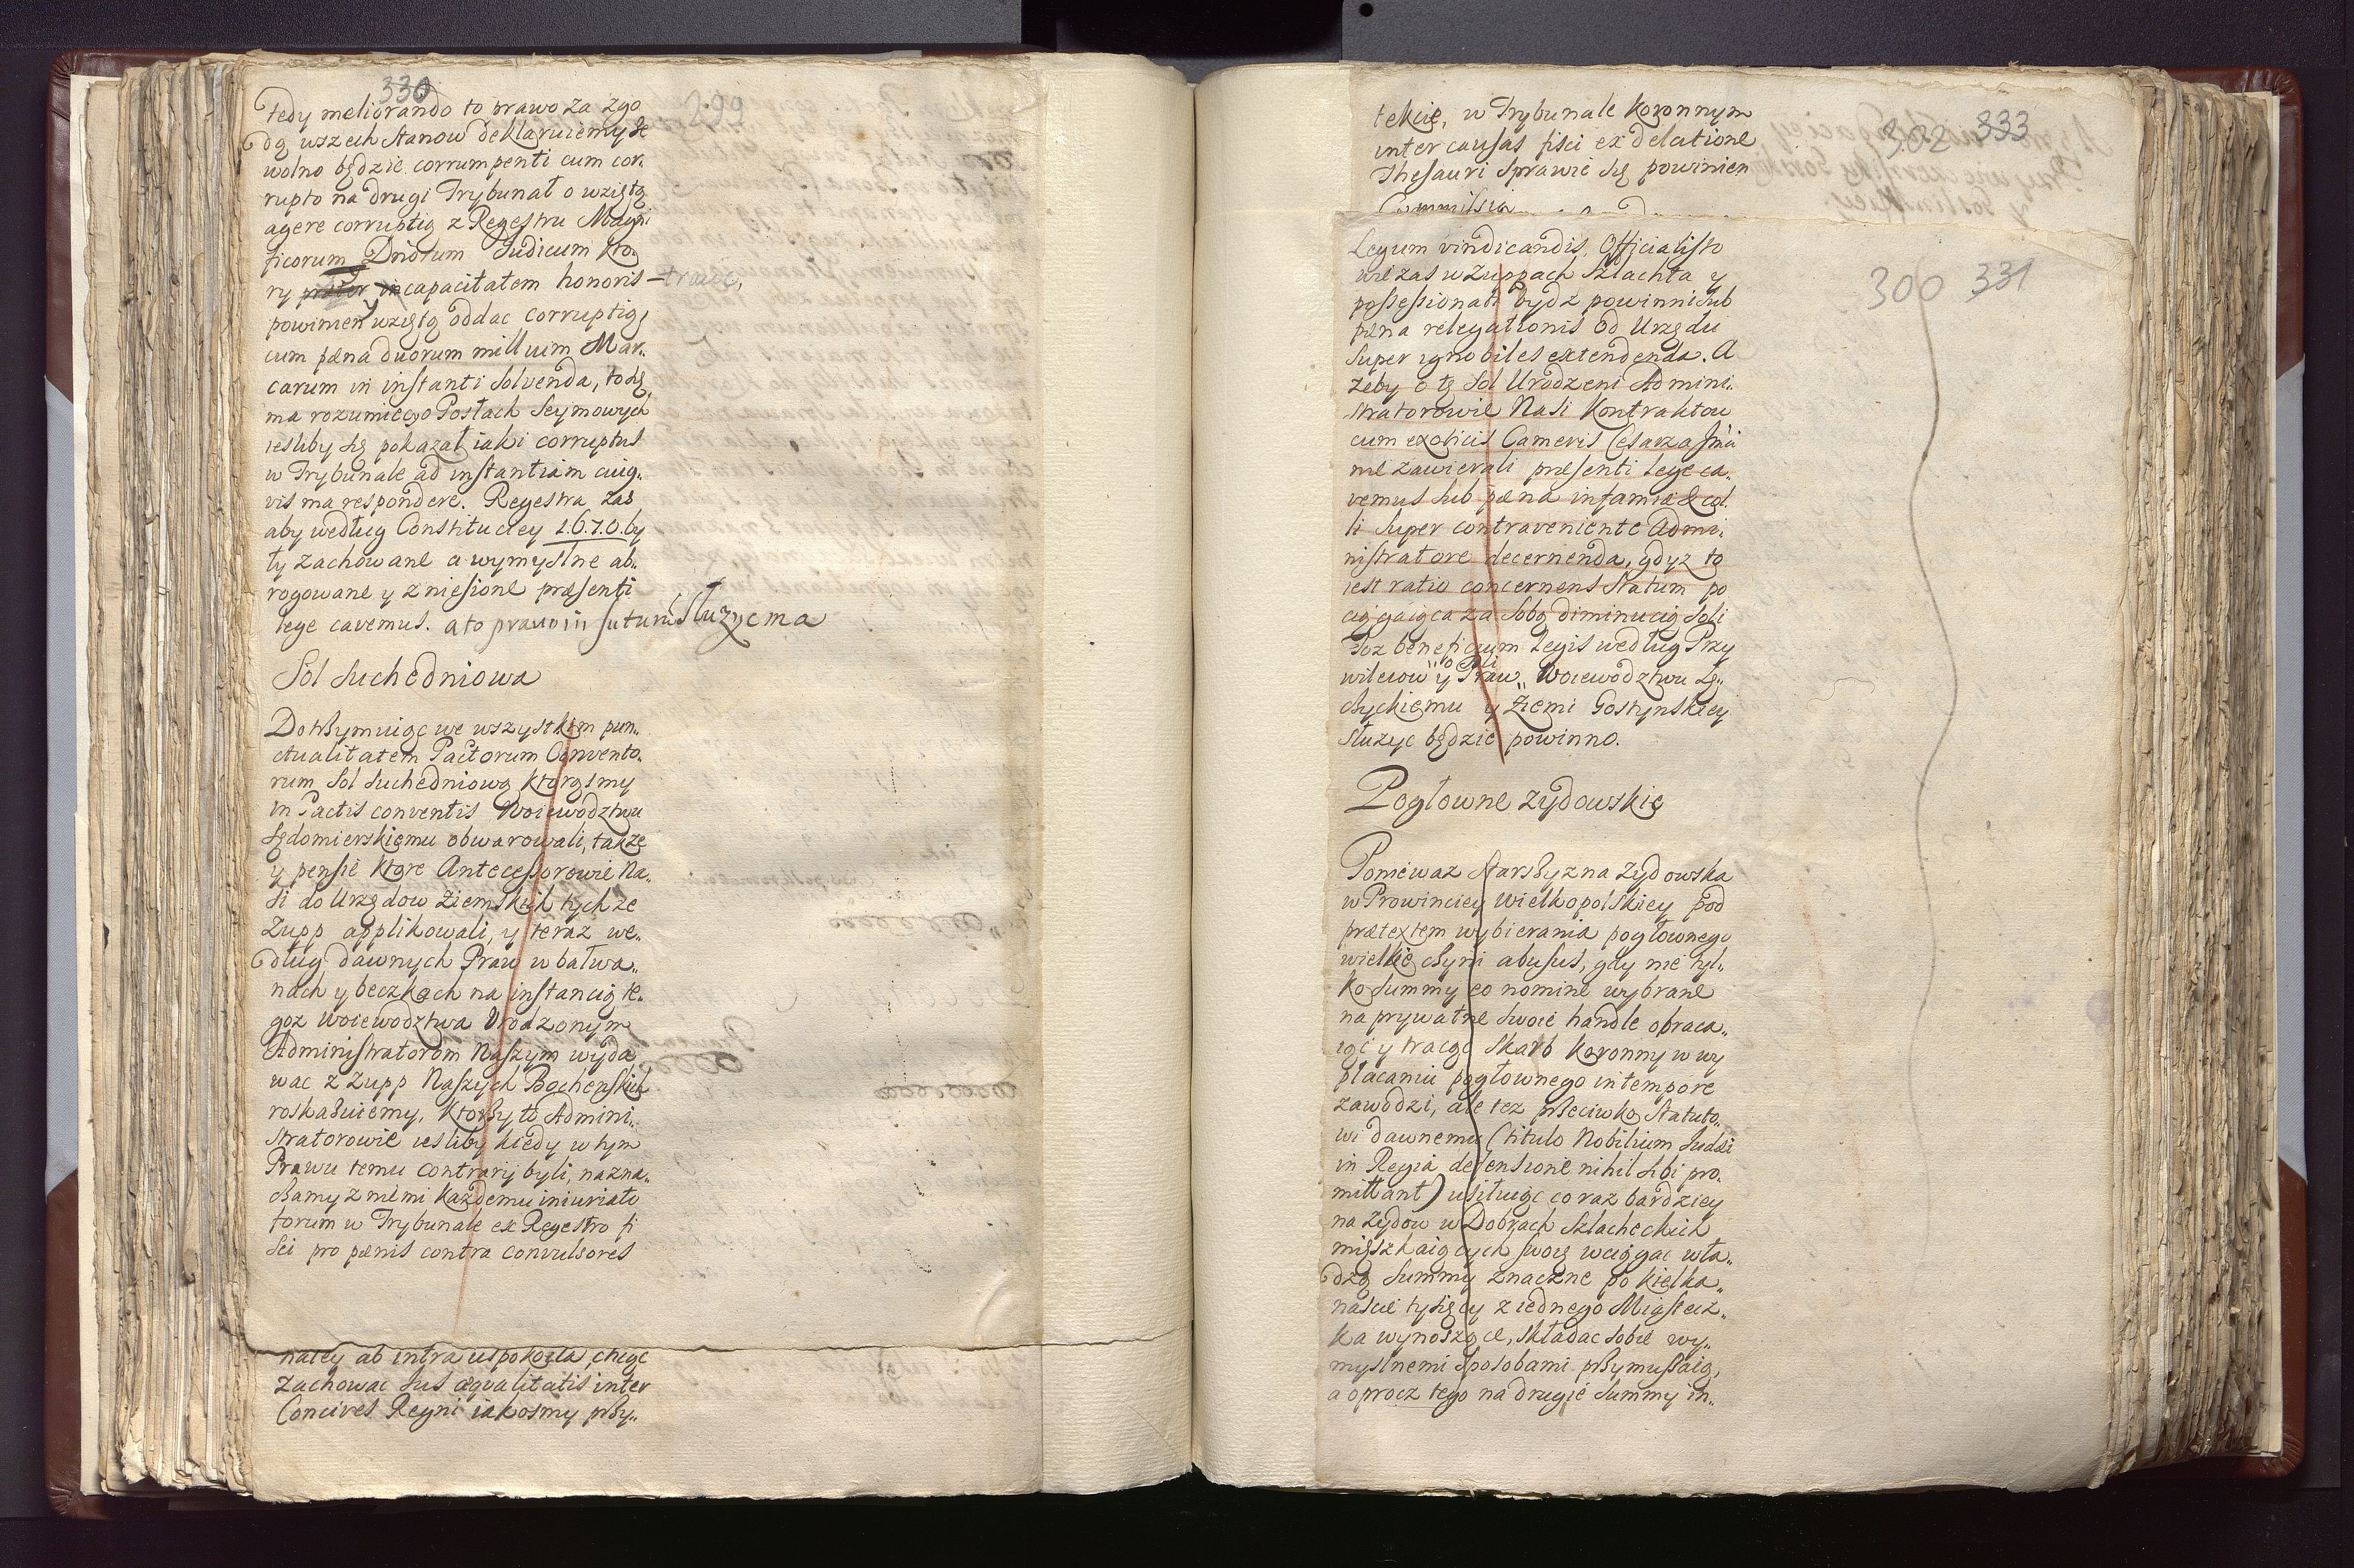 330
299
tedy meliorando to prawo za zgo
dą wszech Stanow deklaruiemy że
wolno będzie corrumpenti cum cor.
rupto na drugi Trybunał o wziętą
agere corruptią z Regestru Magni
ficorum Dnorum Judicum kto.
ry incapacitatem honoris –
powinien wziętą oddac corruptią,
cum pæna duorum millium Mar..
carum in instanti solvenda, to się
ma rozumiec y o Posłach Seymowych
iesliby się pokazał iaki corruptus
w Trybunale ad instantiam cuig..
vis ma respondere. Regestra zas
aby według Constitucιey 1670. by
ły zachowane a wymyslne ab..
rogowane y zniesione præsenti
lege cavemus. a to prawo in futurum służyc ma
Sol Suchedniowa
Dotrzymuiąc we wszystkim pun..
ctualitatem Pactorum Convento.
rum Sol Suchedniową ktorąsmy
in Pactis conventis Woiewodztwu
Sędomierskiemu obwarowali, także
y pensie ktore Antecessorowie Na..
si do Urzędow Ziemskich tychże
Zupp applikowali, y teraz we..
dług dawnych Praw w bałwa..
nach y beczkach na instancią te..
goz Woiewodztwa Urodzonym
Administratorom Naszym wyda
wac z Zupp Naszych Bochenskich
roskazuiemy, Ktorzy to Admini..
stratorowie iesliby kiedy w tym
Prawu temu contrarij byli, nazna..
czamy z niemi każdemu iniuriato
torum w Trybunale ex Regestro fi
sci pro pænis contra convulsores
naley ab intra uspokoiła, chcąc
zachowac Jus æqvalitatis inter
Concives Regni iakosmy przy..
302 333
tekcie, w Trybunale Koronnym
inter causas fisci ex delatione
Thesauri sprawic się powinien
Commissia
300 331
Legum vindicandis, Officialisto
wie zas w Zuppach Szlachta y
possessionati bydz powinni sub
pæna relegationis od Urzędu
super ignobiles extendenda. A
zeby o tę Sol Urodzeni Admini..
stratorowie Nasi Kontraktow
cum exoticis Cameris Cesarza Jmci
nie zawierali præsenti lege ca..
vemus sub pæna infamiæ & col.
li super contraveniente Admi..
nistratore decernenda, gdyz to
iest ratio concernens Statum po
ciągaiąca za sobą diminucią Soli
Toz beneficium Legis według Przy
wileiow y Praw o Soli Woiewodztwu Lę..
czyckiemu y Ziemi Gostynskiey
słuzyc będzie powinno.
Pogłowne Zydowskie
Poniewaz Starszyzna Zydowska
w Prowinciey Wielkopolskiey pod
prætextem wybierania pogłownego
wielkie czyni abusus, gdy nie tyl..
ko Summy eo nomine wybrane
na prywatne swoie handle obraca..
iąc y tracąc Skarb Koronny w wy
płacaniu pogłownego in tempore
zawodzi, ale tez przeciwko Statuto..
wi dawnemu (titulo Nobilium Judæi
in Regia defensione nihil sibi pro..
mittant) usiłuiąc co raz bardziey
na Zydow w Dobrach Szlacheckich
mięszkaiących swoię wciągac wła..
dzą Summy znaczne po kielka..
nascie tysięcy z iednego Miastecz..
ka wynoszące, składac sobie wy..
myslnemi sposobami przymuszaią,
a oprocz tego na drugie Summy in..